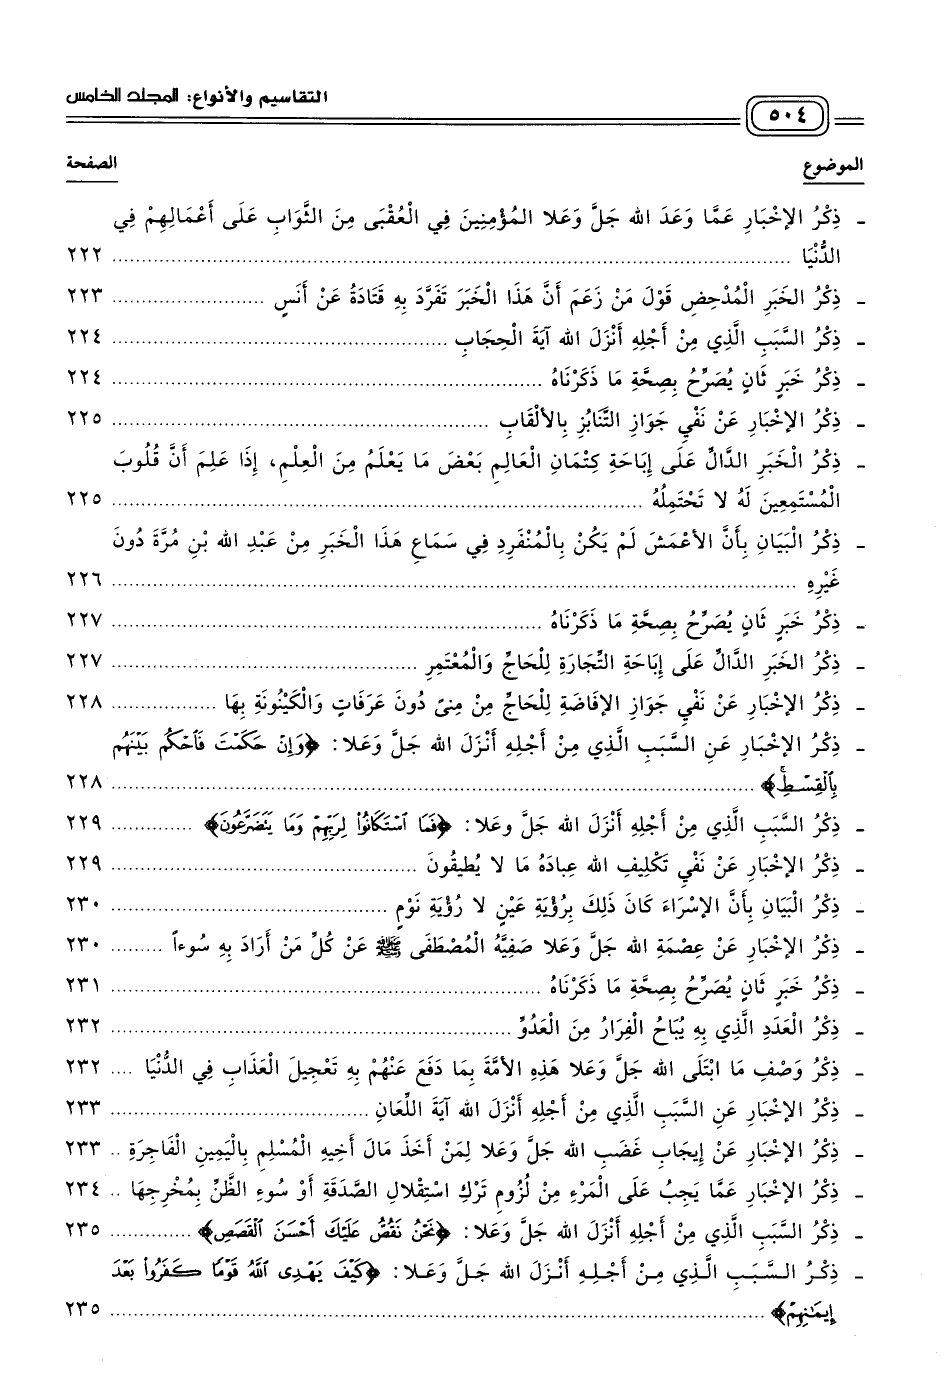 التقاسيم والأنواع: المجلد الخامس
٥٠٤
الموضوع الصفحة
- ذِكْرُ الإخْبَارِ عَمَّا وَعَدَ الله جَلَّ وَعَلا المُؤْمِنِينَ فِي الْعُقْبَى مِنَ الثَّوَابِ عَلَى أَعْمَالِهِمْ فِي
الدُّنْيَا ........ ٢٢٢
- ذِكْرُ الخَبَرِ الْمُدْحِضِ قَوْلَ مَنْ زَعَمَ أَنَّ هَذَا الْخَبَرَ تَفَرَّدَ بِهِ قَتَادَةُ عَنْ أَنَسٍ ........ ٢٢٣
- ذِكْرُ السَّبَبِ الَّذِي مِنْ أَجْلِهِ أَنْزَلَ الله آيَةَ الْحِجَابِ ........ ٢٢٤
- ذِكْرُ خَبَرٍ ثَانٍ يُصَرِّحُ بِصِحَّةِ مَا ذَكَرْنَاهُ ........ ٢٢٤
- ذِكْرُ الإخْبَارِ عَنْ نَفْيِ جَوَازِ التَّنَابُزِ بِالألْقَابِ ........ ٢٢٥
- ذِكْرُ الْخَبَرِ الدَّالِّ عَلَى إِبَاحَةِ كِتْمَانِ الْعَالِمِ بَعْضَ مَا يَعْلَمُ مِنَ الْعِلْمِ، إِذَا عَلِمَ أَنَّ قُلُوبَ
الْمُسْتَمِعِينَ لَهُ لا تَحْتَمِلُهُ ........ ٢٢٥
- ذِكْرُ الْبَيَانِ بِأَنَّ الأعْمَشَ لَمْ يَكُنْ بِالْمُنْفَرِدِ فِي سَمَاعِ هَذَا الْخَبَرِ مِنْ عَبْدِ الله بْنِ مُرَّةَ دُونَ
غَيْرِهِ ........ ٢٢٦
- ذِكْرُ خَبَرٍ ثَانٍ يُصَرِّحُ بِصِحَّةِ مَا ذَكَرْنَاهُ ........ ٢٢٧
- ذِكْرُ الخَبَرِ الدَّالِّ عَلَى إِبَاحَةِ التِّجَارَةِ لِلْحَاجِّ وَالْمُعْتَمِرِ ........ ٢٢٧
- ذِكْرُ الإخْبَارِ عَنْ نَفْيِ جَوَازِ الإفَاضَةِ لِلْحَاجِّ مِنْ مِنىً دُونَ عَرَفَاتٍ وَالْكَيْنُونَةِ بِهَا ........ ٢٢٨
- ذِكْرُ الإخْبَارِ عَنِ السَّبَبِ الَّذِي مِنْ أَجْلِهِ أَنْزَلَ الله جَلَّ وَعَلا: ﴿وَإِنْ حَكَمْتَ فَاحْكُم بَيْنَهُم
بِالْقِسْطِ﴾ ........ ٢٢٨
- ذِكْرُ السَّبَبِ الَّذِي مِنْ أَجْلِهِ أَنْزَلَ الله جَلَّ وعَلا: ﴿فَمَا اسْتَكَانُوا لِرَبِّهِمْ وَمَا يَتَضَرَّعُونَ﴾ ........ ٢٢٩
- ذِكْرُ الإخْبَارِ عَنْ نَفْيِ تَكْلِيفِ الله عِبادَهُ مَا لا يُطيقُونَ ........ ٢٢٩
- ذِكْرُ الْبَيَانِ بِأَنَّ الإسْرَاءَ كَانَ ذَلِكَ بِرُؤْيَةِ عَيْنٍ لا رُؤْيَةِ نَوْمٍ ........ ٢٣٠
- ذِكْرُ الإخْبَارِ عَنْ عِصْمَةِ الله جَلَّ وَعَلا صَفِيَّهُ الْمُصْطَفَى ﷺ عَنْ كُلِّ مَنْ أَرَادَ بِهِ سُوءاً ........ ٢٣٠
- ذِكْرُ خَبَرٍ ثَانٍ يُصَرِّحُ بِصِحَّةِ مَا ذَكَرْنَاهُ ........ ٢٣١
- ذِكْرُ الْعَدَدِ الَّذِي بِهِ يُبَاحُ الْفِرَارُ مِنَ الْعَدُوِّ ........ ٢٣٢
- ذِكْرُ وَصْفِ مَا ابْتَلَى الله جَلَّ وَعَلا هَذِهِ الأمَّةَ بِمَا دَفَعَ عَنْهُمْ بِهِ تَعْجِيلَ الْعَذَابِ فِي الدُّنْيَا .... ٢٣٢
- ذِكْرُ الإخْبَارِ عَنِ السَّبَبِ الَّذِي مِنْ أَجْلِهِ أَنْزَلَ الله آيَةَ اللِّعَانِ ........ ٢٣٣
- ذِكْرُ الإخْبَارِ عَنْ إيجَابِ غَضَبِ الله جَلَّ وَعَلا لِمَنْ أَخَذَ مَالَ أَخِيهِ الْمُسْلِمِ بِالْيَمِينِ الْفَاجِرَةِ .. ٢٣٣
- ذِكْرُ الإخْبَارِ عَمَّا يَجِبُ عَلَى الْمَرْءِ مِنْ لُزُومِ تَرْكِ اسْتِقْلالِ الصَّدَقَةِ أَوْ سُوءِ الظَّنِّ بِمُخْرِجِهَا .. ٢٣٤
- ذِكْرُ السَّبَبِ الَّذِي مِنْ أَجْلِهِ أَنْزَلَ الله جَلَّ وَعَلا: ﴿نَحْنُ نَقُصُّ عَلَيْكَ أَحْسَنَ الْقَصَصِ﴾ ........ ٢٣٥
- ذِكْرُ السَّبَبِ الَّذِي مِنْ أَجْلِهِ أَنْزَلَ الله جَلَّ وَعَلا: ﴿كَيْفَ يَهْدِى اللَّهُ قَوْمًا كَفَرُوا بَعْدَ
إِيمَٰنِهِمْ﴾ ........ ٢٣٥